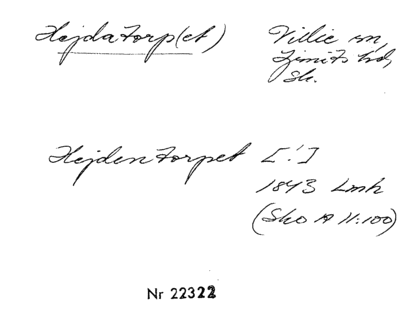 Hejdatorp(et) Villie sn,
Ljunits hd,
Sk.
Hejdentorpet [!]
1843 Lmk
(Sko A 11:100)
Nr 22322